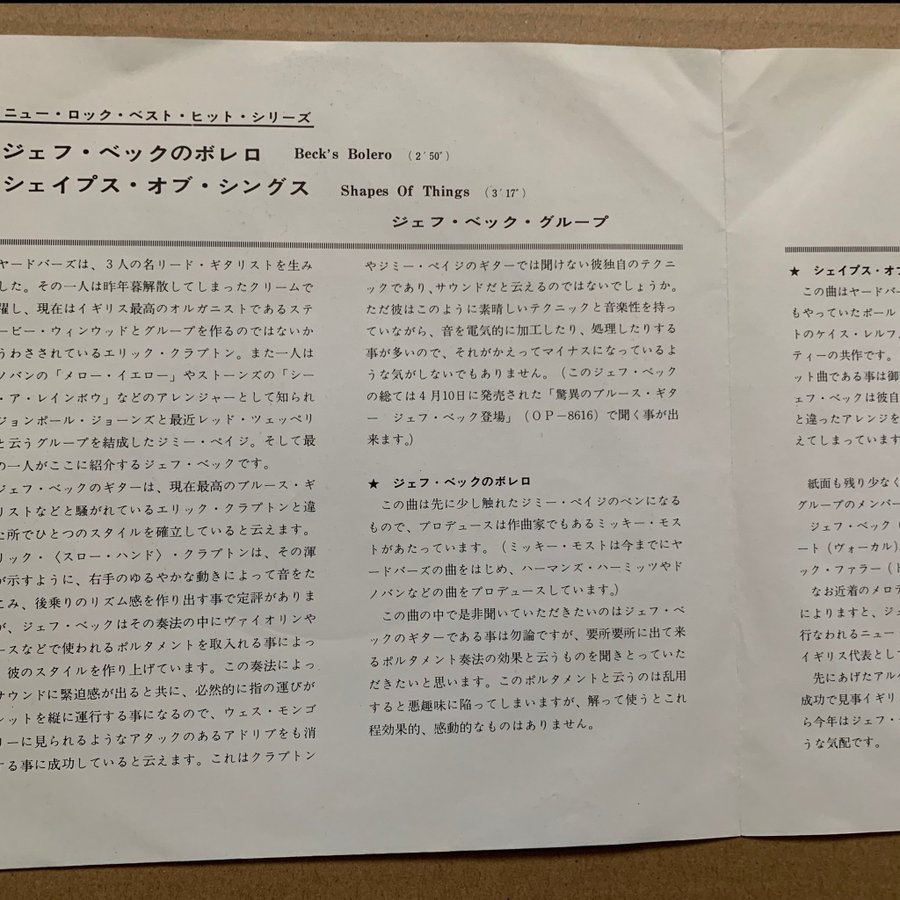 ニュー・ロック・ベスト・ヒット・シリーズ
ジェフ・ベックのボレロ Beck's Bolero (2′50″)
シェイプス・オブ・シングス Shapes Of Things (3′17″)
ジェフ・ベック・グループ
ヤードバーズは、3人の名リード・ギタリストを生み
した。その一人は昨年暮解散してしまったクリームで
躍し、現在はイギリス最高のオルガニストであるステ
ービー・ウィンウッドとグループを作るのではないか
うわさされているエリック・クラプトン。また一人は
ノバンの「メロー・イエロー」やストーンズの「シー
・ア・レインボウ」などのアレンジャーとして知られ
ジョンポール・ジョーンズと最近レッド・ツェッペリ
と云うグループを結成したジミー・ペイジ。そして最
の一人がここに紹介するジェフ・ベックです。
ジェフ・ベックのギターは、現在最高のブルース・ギ
リストなどと騒がれているエリック・クラプトンと違
た所でひとつのスタイルを確立していると云えます。
リック・〈スロー・ハンド〉・クラプトンは、その渾
が示すように、右手のゆるやかな動きによって音をた
こみ、後乗りのリズム感を作り出す事で定評がありま
が、ジェフ・ベックはその奏法の中にヴァイオリンや
ースなどで使われるポルタメントを取入れる事によっ
彼のスタイルを作り上げています。この奏法によっ
サウンドに緊迫感が出ると共に、必然的に指の運びが
レットを縦に運行する事になるので、ウェス・モンゴ
リーに見られるようなアタックのあるアドリブをも消
する事に成功していると云えます。これはクラプトン
やジミー・ペイジのギターでは聞けない彼独自のテクニ
ックであり、サウンドだと云えるのではないでしょうか。
ただ彼はこのように素晴しいテクニックと音楽性を持っ
ていながら、音を電気的に加工したり、処理したりする
事が多いので、それがかえってマイナスになっているよ
うな気がしないでもありません。(このジェフ・ベック
の総ては4月10日に発売された「驚異のブルース・ギタ
ー ジェフ・ベック登場」(OP−8616)で聞く事が出
来ます。)
★ ジェフ・ベックのボレロ
この曲は先に少し触れたジミー・ペイジのペンになる
もので、プロデュースは作曲家でもあるミッキー・モス
トがあたっています。(ミッキー・モストは今までにヤ
ードバーズの曲をはじめ、ハーマンズ・ハーミッツやド
ノバンなどの曲をプロデュースしています。)
この曲の中で是非聞いていただきたいのはジェフ・ベ
ックのギターである事は勿論ですが、要所要所に出て来
るポルタメント奏法の効果と云うものを聞きとっていた
だきたいと思います。このポルタメントと云うのは乱用
すると悪趣味に陥ってしまいますが、解って使うとこれ
程効果的、感動的なものはありません。
★ シェイプス・オブ
この曲はヤードバー
もやっていたポール
トのケイス・レルフ、
ティーの共作です。
ット曲である事は御
ェフ・ベックは彼自
と違ったアレンジを
えてしまっています
紙面も残り少なく
グループのメンバー
ジェフ・ベック(
ート(ヴォーカル)、
ック・ファラー(ド
なお近着のメロデ
によりますと、ジェ
行なわれるニュー
イギリス代表として
先にあげたアルバ
成功で見事イギリス
ら今年はジェフ・
うな気配です。